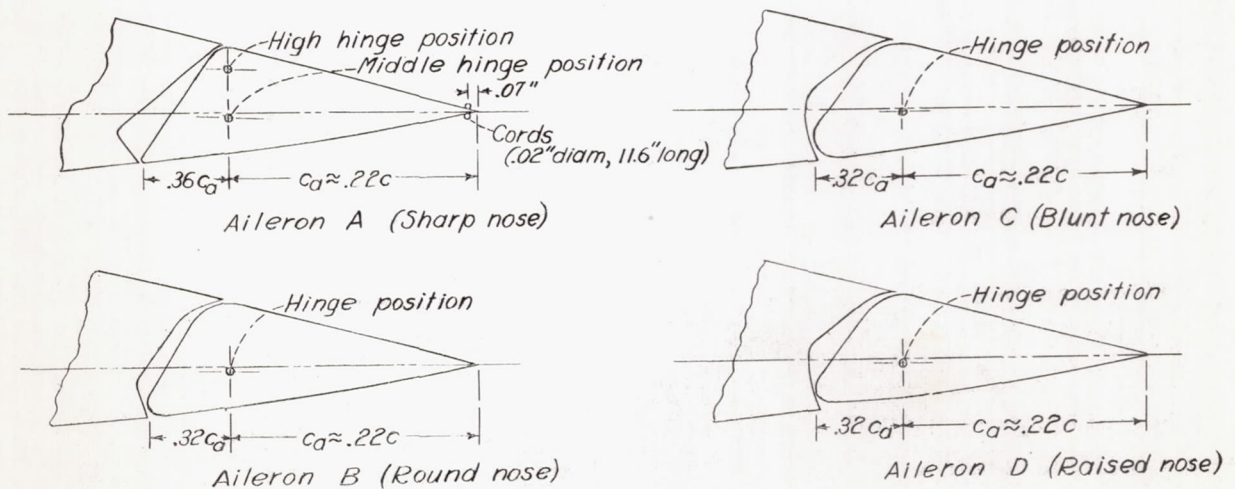 High hinge position
Middle hinge position
.07"
Cords
(.02"diam, 11.6"long)
.36cₐ
cₐ≈.22c
Aileron A (Sharp nose)
Hinge position
.32cₐ
cₐ≈.22c
Aileron C (Blunt nose)
Hinge position
.32cₐ
cₐ≈.22c
Aileron B (Round nose)
Hinge position
.32cₐ
cₐ≈.22c
Aileron D (Raised nose)